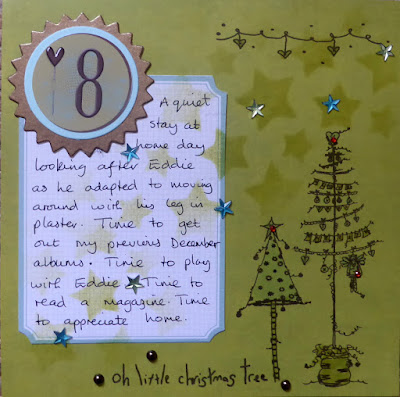 8
A quiet
stay at
home day
looking after Eddie
as he adapted to moving
around with his leg in
plaster. Time to get
out my previous December
albums. Time to play
with Eddie. Time to
read a magazine. Time
to appreciate home.
oh little christmas tree